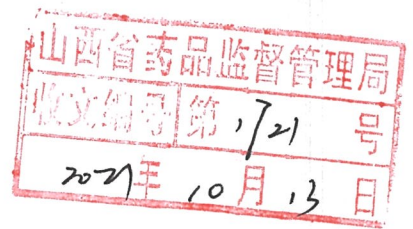 山西省药品监督管理局
收文编号 第1721号
2021年10月13日